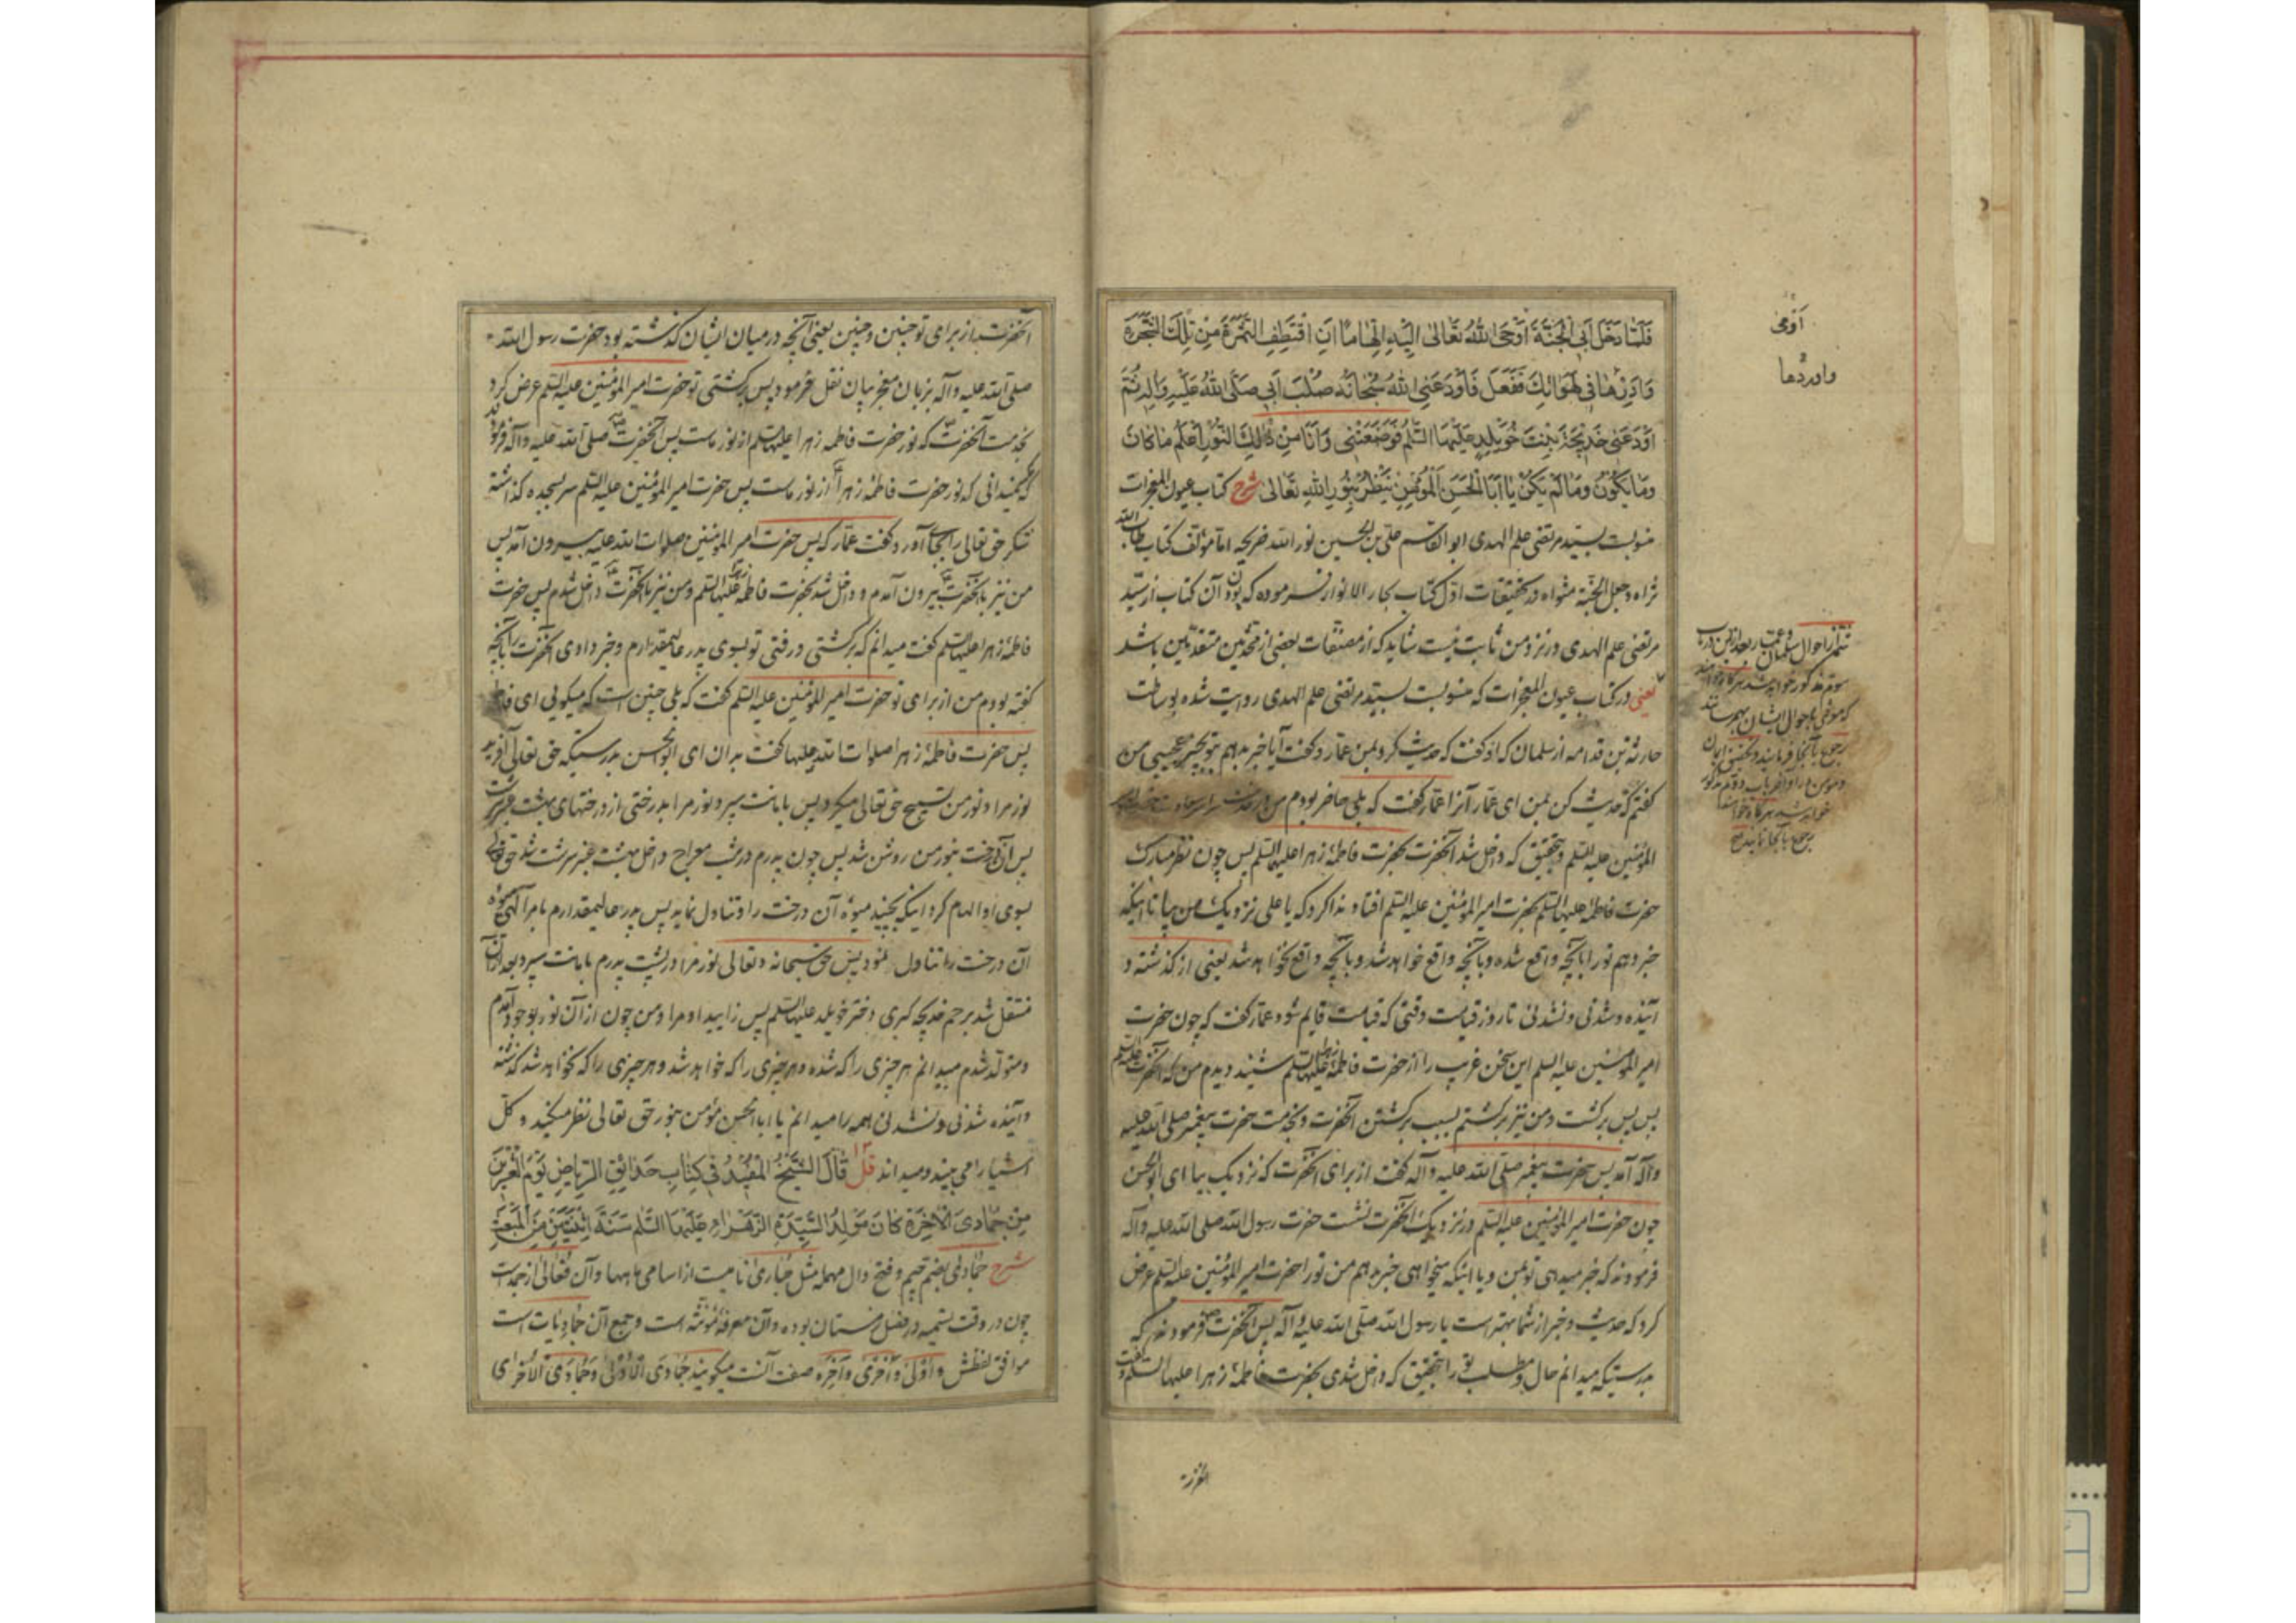 فَلَمّا دَخَلَ اَبِي الْجَنَّةَ اَوْحَى اللّٰهُ تَعَالٰى اِلَيْهِ اِلْهَامًا اَنِ اقْتَطِفِ الثَّمَرَةَ مِنْ تِلْكَ الشَّجَرَةِ
وَاَدِرْهَا فِي لَهَوَاتِكَ فَفَعَلَ فَاَوْدَعَنِي اللّٰهُ سُبْحَانَهُ صُلْبَ اَبِي صَلَّى اللّٰهُ عَلَيْهِ وَآلِهِ ثُمَّ
اَوْدَعَنِي خَدِيجَةَ بِنْتَ خُوَيْلِدٍ عَلَيْهَا السَّلَمُ فَوَضَعَتْنِي وَاَنَا مِنْ ذٰلِكَ النُّورِ اَعْلَمُ مَا كَانَ
وَمَا يَكُونُ وَمَا لَمْ يَكُنْ يَا اَبَا الْحَسَنِ الْمُؤْمِنُ يَنْظُرُ بِنُورِ اللّٰهِ تَعَالٰى شرح کتاب عیون المعجزات
منسوبست بسید مرتضی علم الهدی ابو القاسم علی بن الحسین نور الله ضریحه اما مؤلف کتاب طاب الله
ثراه و جعل الجنة مثواه در تحقیقات اول کتاب بحار الانوار فرموده که بودن آن کتاب از سید
مرتضی علم الهدی در نزد من ثابت نیست شاید که از مصنفات بعضی از محدثین متقدمین باشد
یعنی در کتاب عیون المعجزات که منسوبست بسید مرتضی علم الهدی روایت شده بوساطت
حارثة بن قدامه از سلمان که او گفت که حدیث کرد بمن عمار و گفت آیا خبر بدهم بتو بچیز عجیبی من
گفتم که حدیث کن بمن ای عمار آنرا عمار گفت که بلی حاضر بودم من در خدمت
المؤمنین علیه السلم و بتحقیق که داخل شد آنحضرت بحضرت فاطمهٔ زهرا علیها السلم پس چون نظر مبارک
حضرت فاطمه علیها السلم بحضرت امیر المؤمنین علیه السلم افتاد ندا کرد که یا علی نزدیک من بیا تا اینکه
خبر دهم تو را بآنچه واقع شده و بآنچه واقع خواهد شد و بآنچه واقع نخواهد شد یعنی از گذشته و
آینده و شدنی و نشدنی تا روز قیامت وقتی که قیامت قایم شود و عمار گفت که چون حضرت
امیر المؤمنین علیه السلم این سخن غریب را از حضرت فاطمهٔ زهرا علیها السلم شنید دیدم من که آنحضرت علیه السلم
پس پس برگشت و من نیز برگشتم بسبب برگشتن آنحضرت و بخدمت حضرت پیغمبر صلی الله علیه
وآله آمد پس حضرت پیغمبر صلی الله علیه و آله گفت از برای آنحضرت که نزدیک بیا ای ابو الحسن
چون حضرت امیر المؤمنین علیه السلم در نزدیک آنحضرت نشست حضرت رسول الله صلی الله علیه وآله
فرمودند که خبر میدهی تو بمن و یا اینکه میخواهی خبر بدهم من تو را حضرت امیر المؤمنین علیه السلم عرض
کرد که حدیث و خبر از شما بهتر است یا رسول الله صلی الله علیه و آله پس آنحضرت فرمودند که
بدرستیکه میدانم حال و مطلب تو را بتحقیق که داخل شدی بحضرت فاطمهٔ زهرا علیها السلم و گفت
اَوْحٰی
واوردها
تتمه از احوال سلمان و عمار بعد ازین در باب
سوم مذکور خواهد شد هر که خواهد
که احوال ایشان بهم رساند
رجوع بآنجا فرمایند و تحقیق ایمان
و مومن در اواخر باب دوم مذکور
خواهد شد هر که خواهد
رجوع بآنجا نماید
آنحضرت از برای تو چنین و چنین یعنی آنچه در میان ایشان گذشته بود حضرت رسول الله
صلی الله علیه وآله بزبان معجز بیان نقل فرمود پس برگشتی تو حضرت امیر المؤمنین علیه السلم عرض کرد
بخدمت آنحضرت که نور حضرت فاطمه زهرا علیها السلم از نور ماست پس آنحضرت صلی الله علیه وآله فرمود
که نمیدانی که نور حضرت فاطمهٔ زهرا از نور ماست پس حضرت امیر المؤمنین علیه السلم سر بسجده گذاشته
شکر حق تعالی را بجای آورد و گفت عمار که پس حضرت امیر المؤمنین صلوات الله علیه بیرون آمد پس
من نیز با آنحضرت بیرون آمدم و داخل شد بحضرت فاطمه زهرا علیها السلم و من نیز با آنحضرت داخل شدم پس حضرت
فاطمهٔ زهرا علیها السلم گفت میدانم که برگشتی و رفتی تو بسوی پدر عالیمقدارم و خبر دادی آنحضرت را بآنچه
گفته بودم من از برای تو حضرت امیر المؤمنین علیه السلم گفت که بلی چنین است که میگویی ای فاطمه
پس حضرت فاطمهٔ زهرا صلوات الله علیها گفت بدان ای ابو الحسن بدرستیکه حق تعالی آفرید
نور مرا و نور من تسبیح حق تعالی میکرد پس بامانت سپرد نور مرا بدرختی از درختهای بهشت عنبر سرشت
پس آن درخت بنور من روشن شد پس چون پدرم در شب معراج داخل بهشت عنبر سرشت شد حق تعالی
بسوی او الهام کرد اینکه بچیند میوه آن درخت را و تناول نماید پس پدر عالیمقدارم بامر الهی میوه
آن درخت را تناول نمود پس حق سبحانه و تعالی نور مرا در پشت پدرم بامانت سپرد بعد از آن
منتقل شد برحم خدیجه کبری دختر خویلد علیها السلم پس زایید او مرا و من چون از آن نور بوجود آمدم
و متولد شدم میدانم هر چیزی را که شده و هر چیزی را که خواهد شد و هر چیزی را که نخواهد شد گذشته
و آینده شدنی و نشدنی همه را میدانم یا ابا الحسن مؤمن بنور حق تعالی نظر میکند و کل
اشیا را می بیند و میداند قل قَالَ الشَّيْخُ الْمُفِيدُ فِي كِتَابِ حَدَائِقِ الرِّيَاضِ يَوْمَ الْعِشْرِينَ
مِنْ جُمَادَى الْآخِرَةِ كَانَ مَوْلِدُ السَّيِّدَةِ الزَّهْرَاءِ عَلَيْهَا السَّلَمُ سَنَةَ اثْنَتَيْنِ مِنَ الْمَبْعَثِ
شرح جُمادی بضم جیم و فتح دال مهمله مثل حُباری نامیست از اسامی ماهها و آن فُعالی از جمدست
چون در وقت تسمیه در فصل زمستان بوده و آن معرفهٔ مؤنثه است و جمع آن جُمادیات است
موافق لفظش و اُولی و اُخری و آخِره صفت آنست میگویند جُمادَی الاُولی و جُمادَی الاُخری